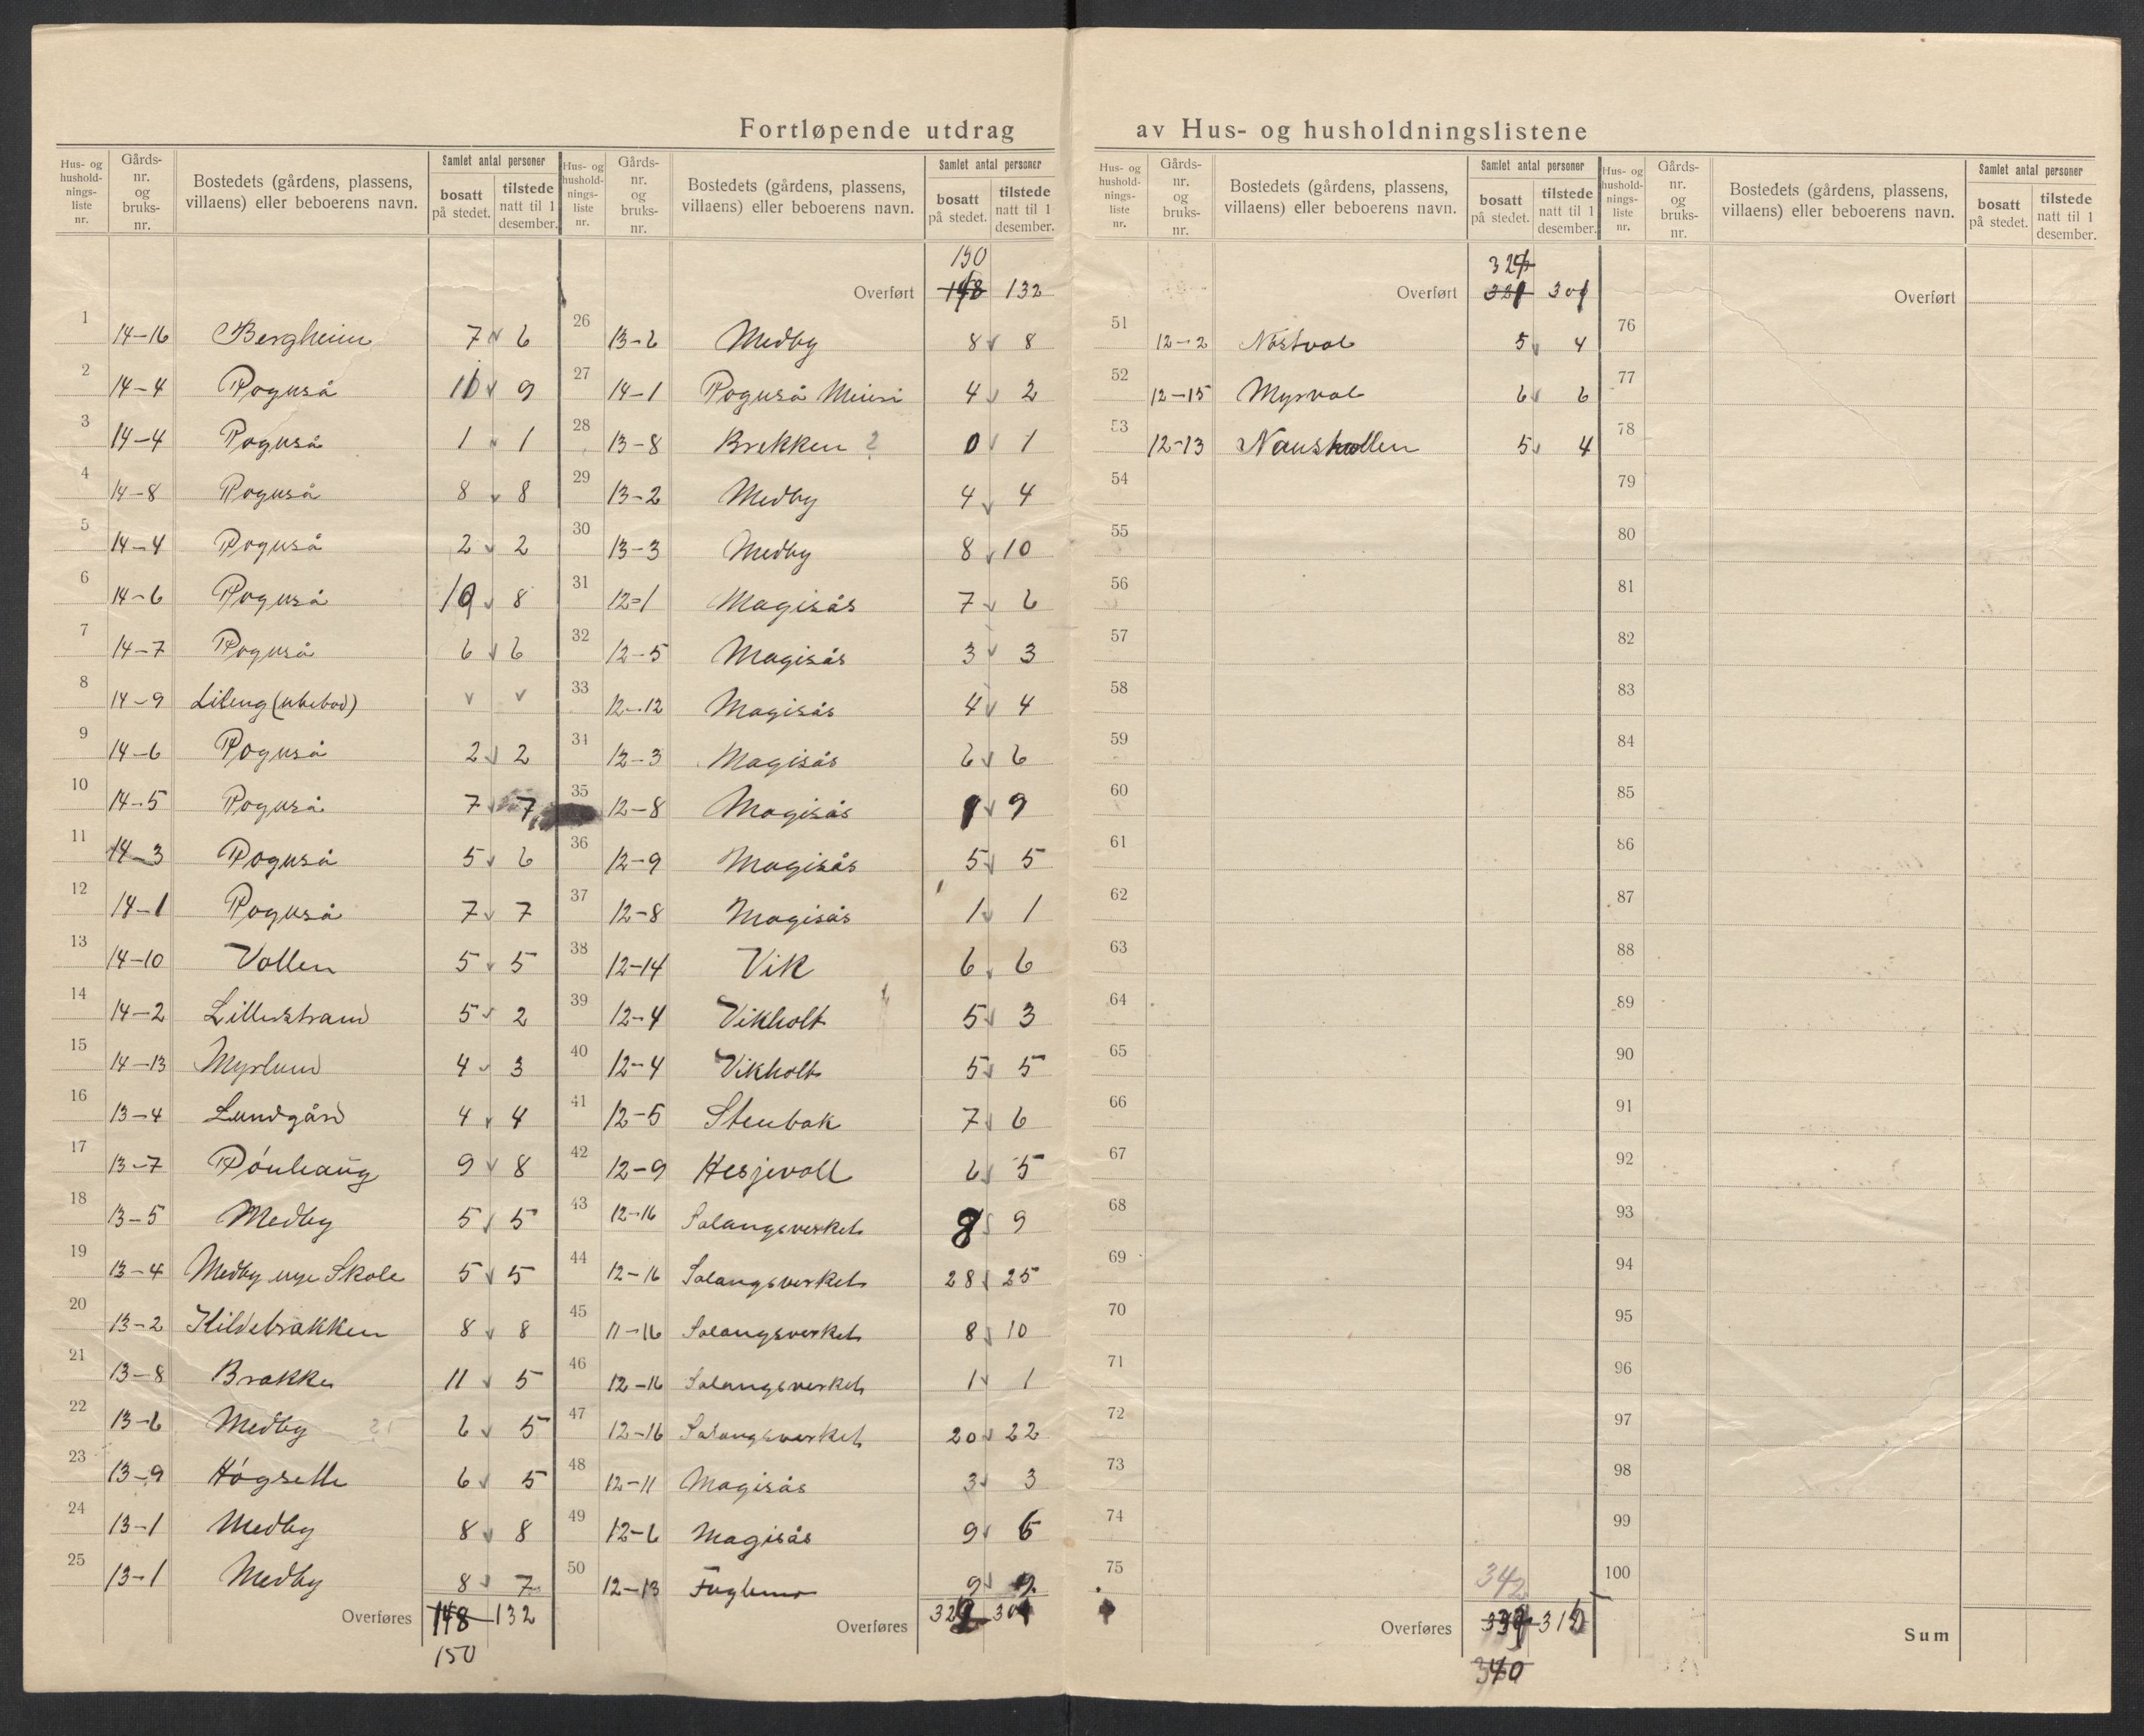 Fortløpende utdrag av Hus- og husholdningslistene
Hus- og husholdnings-liste nr. Gårds-nr. og bruks-nr. Bostedets (gårdens, plassens, villaens) eller beboerens navn. Samlet antal personer bosatt på stedet. tilstede natt til 1 desember.
1 14-16 Bergheim 7 6
2 14-4 Rognså 10 9
3 14-4 Rognså 1 1
4 14-8 Rognså 8 8
5 14-4 Rognså 2 2
6 14-6 Rognså 10 8
7 14-7 Rognså 6 6
8 14-9 Lileng (ubebod) v v
9 14-6 Rognså 2 2
10 14-5 Rognså 7 7
11 14-3 Rognså 5 6
12 14-1 Rognså 7 7
13 14-10 Vollen 5 5
14 14-2 Lillestrand 5 2
15 14-13 Myrlund 4 3
16 13-4 Lundgård 4 4
17 13-7 Rónhaug 9 8
18 13-5 Medby 5 5
19 13-4 Medby nye Skole 5 5
20 13-2 Kildebrakken 8 8
21 13-8 Brakke 11 5
22 13-6 Medby 6 5
23 13-9 Høgsette 6 5
24 13-1 Medby 8 8
25 13-1 Medby 8 7
Overføres 148 132
150
Hus- og husholdnings-liste nr. Gårds-nr. og bruks-nr. Bostedets (gårdens, plassens, villaens) eller beboerens navn. Samlet antal personer bosatt på stedet. tilstede natt til 1 desember.
150
Overført 148 132
26 13-6 Medby 8 8
27 14-1 Rognså 4 2
28 13-8 Brekken ? 0 1
29 13-2 Medby 4 4
30 13-3 Medby 8 10
31 12-1 Magisås 7 6
32 12-5 Magisås 3 3
33 12-12 Magisås 4 4
34 12-3 Magisås 6 6
35 12-8 Magisås 9
36 12-9 Magisås 5 5
37 12-8 Magisås 1 1
38 12-14 Vik 6 6
39 12-4 Vikholt 5 3
40 12-4 Vikholt 5 5
41 12-5 Stenbak 7 6
42 12-9 Hesjevoll 6 5
43 12-16 Salangsverket 8 9
44 12-16 Salangsverket 28 25
45 11-16 Salangsverket 8 10
46 12-16 Salangsverket 1 1
47 12-16 Salangsverket 20 22
48 12-11 Magisås 3 3
49 12-6 Magisås 9 6
50 12-13 Fuglemo 9 9
Overføres
Hus- og husholdnings-liste nr. Gårds-nr. og bruks-nr. Bostedets (gårdens, plassens, villaens) eller beboerens navn. Samlet antal personer bosatt på stedet. tilstede natt til 1 desember.
Overført
51 12-2 Nøstvol 5 4
52 12-15 Myrvol 6 6
53 12-13 Naushollen 5 4
54
55
56
57
58
59
60
61
62
63
64
65
66
67
68
69
70
71
72
73
74
75
342
Overføres 315
340
Hus- og husholdnings-liste nr. Gårds-nr. og bruks-nr. Bostedets (gårdens, plassens, villaens) eller beboerens navn. Samlet antal personer bosatt på stedet. tilstede natt til 1 desember.
Overført
76
77
78
79
80
81
82
83
84
85
86
87
88
89
90
91
92
93
94
95
96
97
98
99
100
Sum